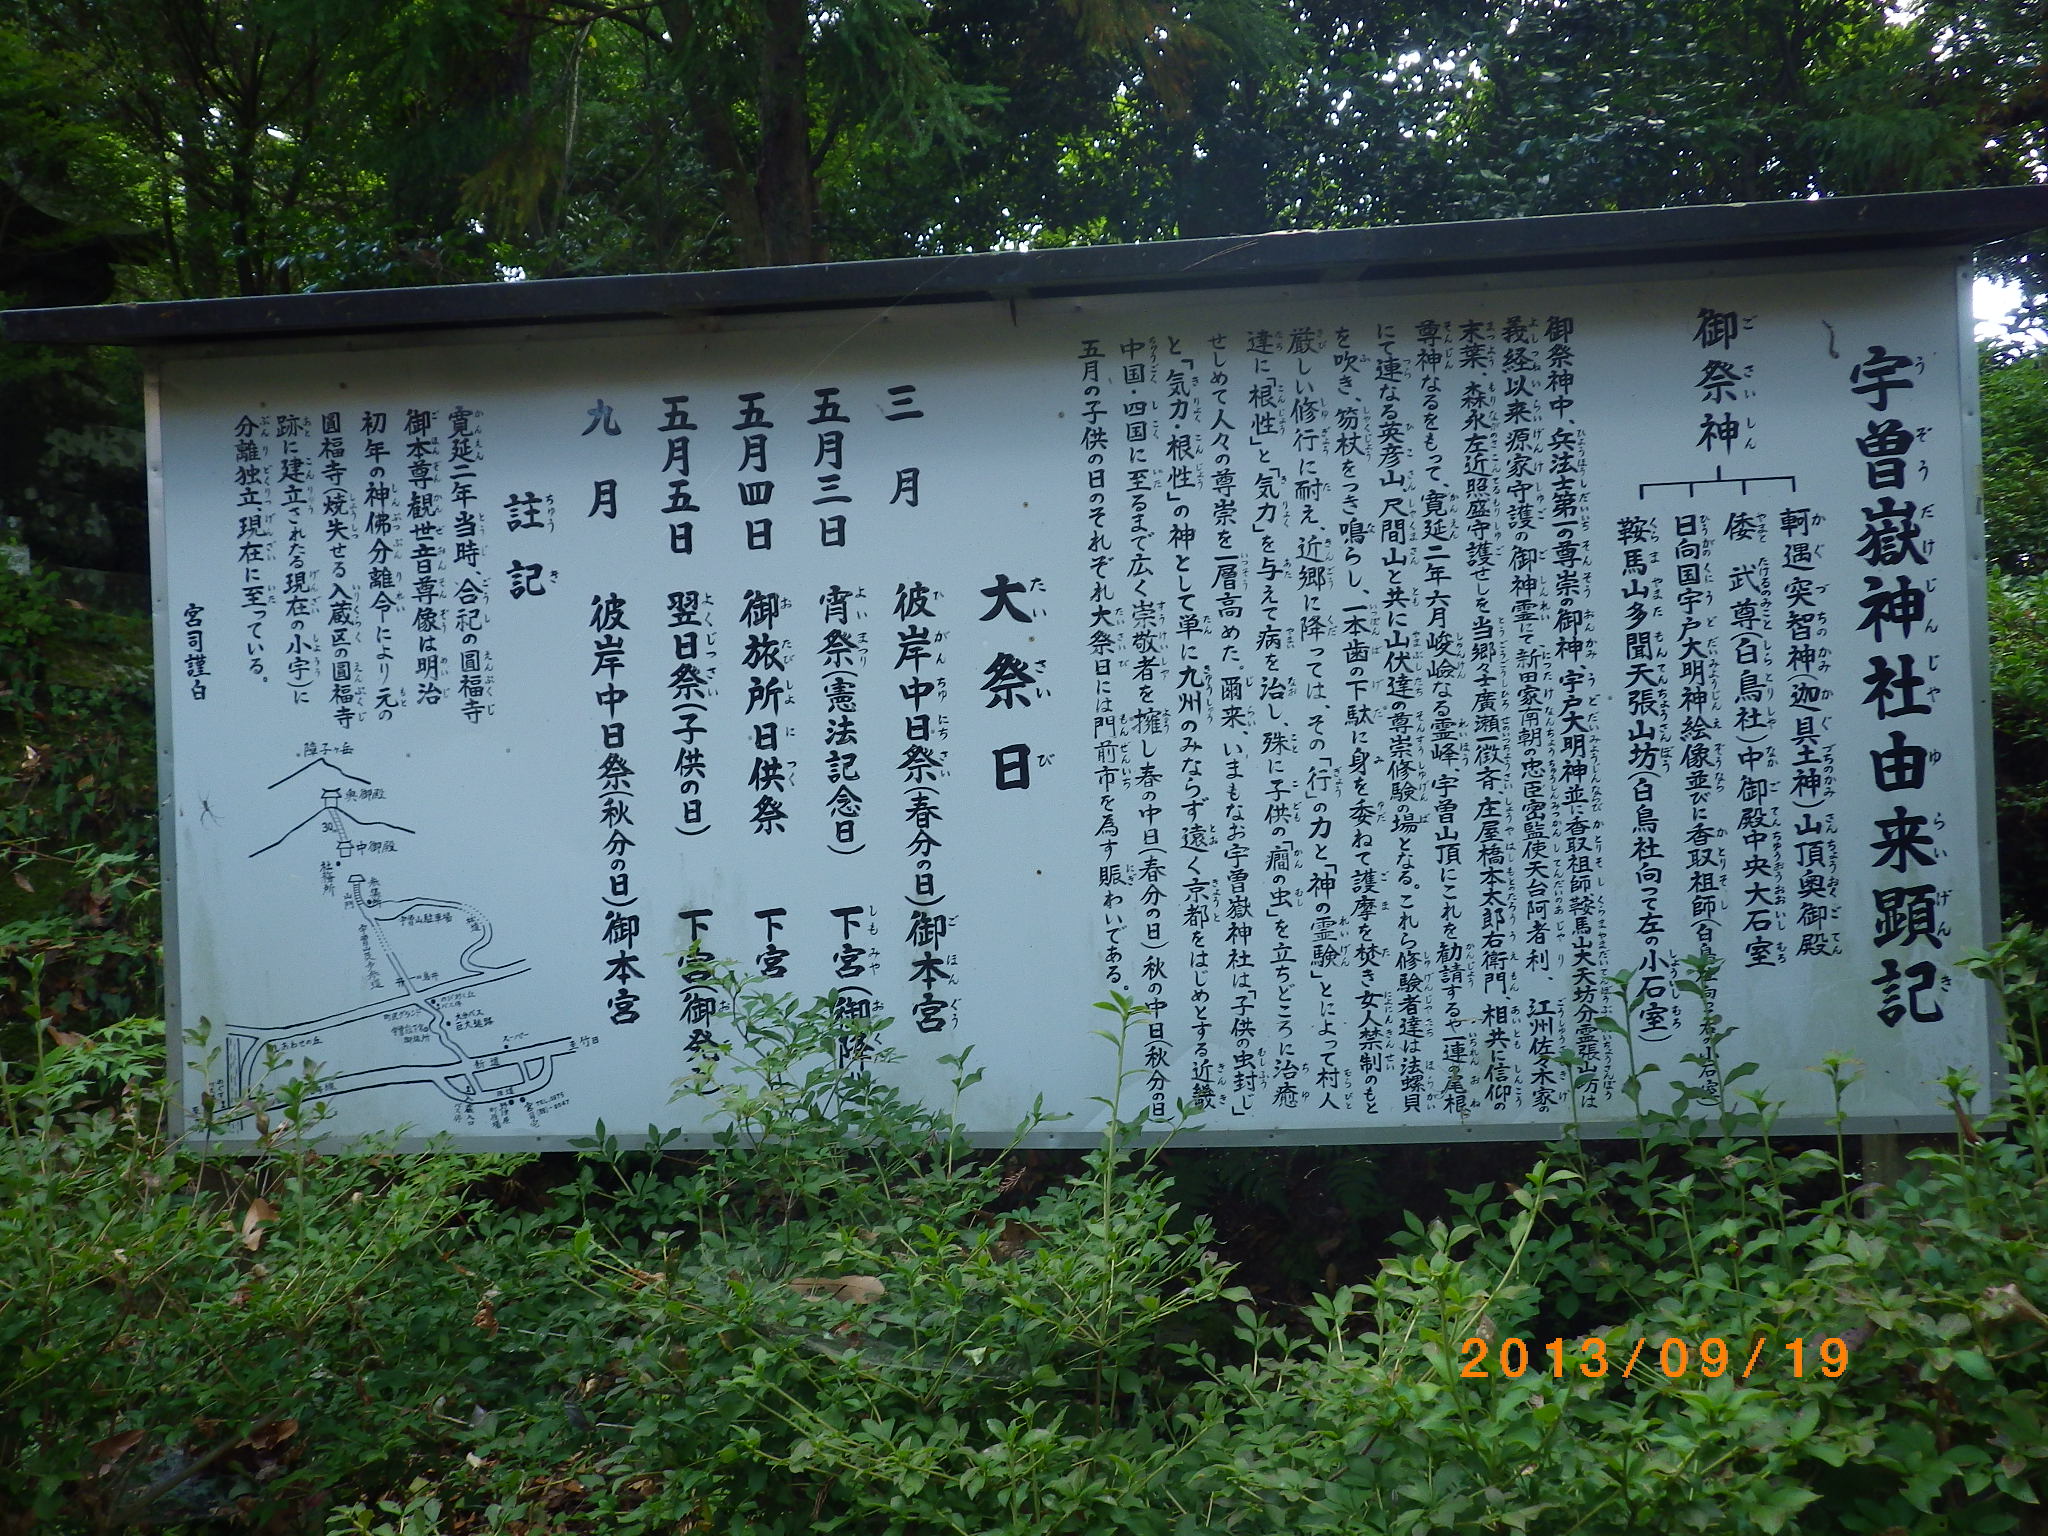 宇曽嶽神社由来顕記
御祭神
軻遇突智神(迦具土神)山頂奥御殿
倭武尊(白鳥社)中御殿中央大石室
日向国宇戸大明神絵像並びに香取祖師
鞍馬山多聞天張山坊(白鳥社向って左の小石室)
御祭神中、兵法士第一の尊崇の御神、宇戸大明神並に香取祖師、鞍馬山大天坊分霊張山坊は
義経以来源家守護の御神霊にて新田家南朝の忠臣密監使天台阿者利、江州佐々木家の
末葉、森永左近照盛守護せしを当郷々士廣瀬一徴斉、庄屋橋本太郎右衛門、相共に信仰の
尊神なるをもって、寛延二年六月峻嶮なる霊峰、宇曽山頂にこれを勧請するや一連の尾根
にて連なる英彦山、尺間山と共に山伏達の尊崇修験の場となる。これら修験者達は法螺貝
を吹き、笏杖をつき鳴らし、一本歯の下駄に身を委ねて護摩を焚き女人禁制のもと
厳しい修行に耐え、近郷に降っては、その「行」の力と「神の霊験」とによって村人
達に「根性」と「気力」を与えて病を治し、殊に子供の「癇の虫」を立ちどころに治癒
せしめて人々の尊崇を一層高めた。爾来、いまもなお宇曽嶽神社は「子供の虫封じ」
と「気力・根性」の神として単に九州のみならず遠く京都をはじめとする近畿
中国・四国に至るまで広く崇敬者を擁し春の中日(春分の日)秋の中日(秋分の日)
五月の子供の日のそれぞれ大祭日には門前市を為す賑わいである。
大祭日
三月 彼岸中日祭(春分の日)御本宮
五月三日 宵祭(憲法記念日) 下宮(御降
五月四日 御旅所日供祭 下宮
五月五日 翌日祭(子供の日) 下宮(御発
九月 彼岸中日祭(秋分の日)御本宮
註記
寛延二年当時、合祀の圓福寺
御本尊観世音尊像は明治
初年の神佛分離令により元の
圓福寺(焼失せる入蔵区の圓福寺
跡に建立されたる現在の小宇)に
分離独立、現在に至っている。
宮司謹白
障子ヶ岳
奥御殿
30
中御殿
社務所
山門
宇曽山駐車場
一の鳥居
町民グラウンド
大分バス
スーパー
新道
至竹田
旧道
2013/09/19